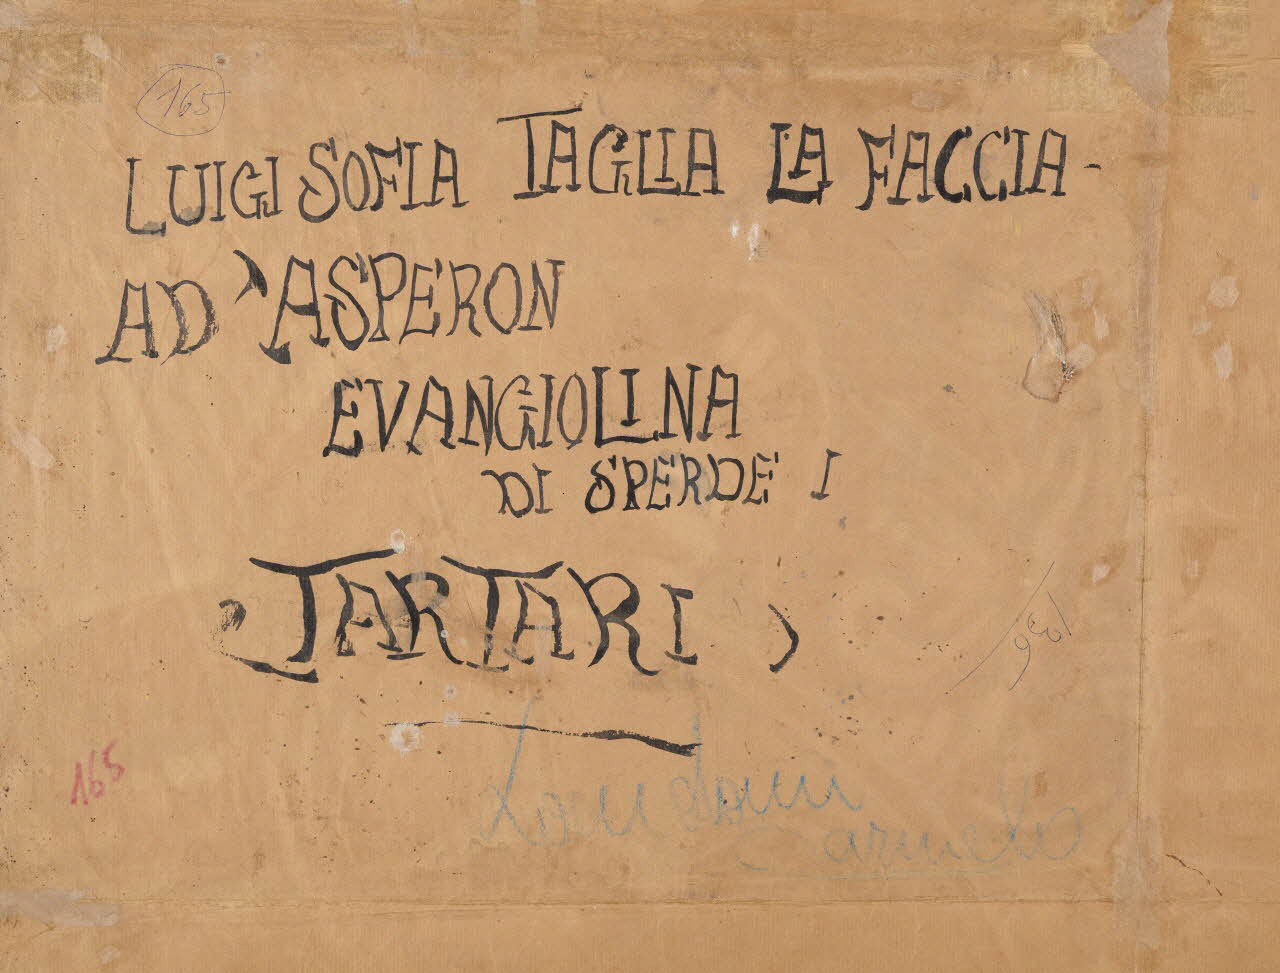 165
LUIGI SOFIA TAGLIA LA FACCIA -
AD 'ASPERON
EVANGIOLINA
DI SPERDE I
TARTARI
136
165
Carmelo